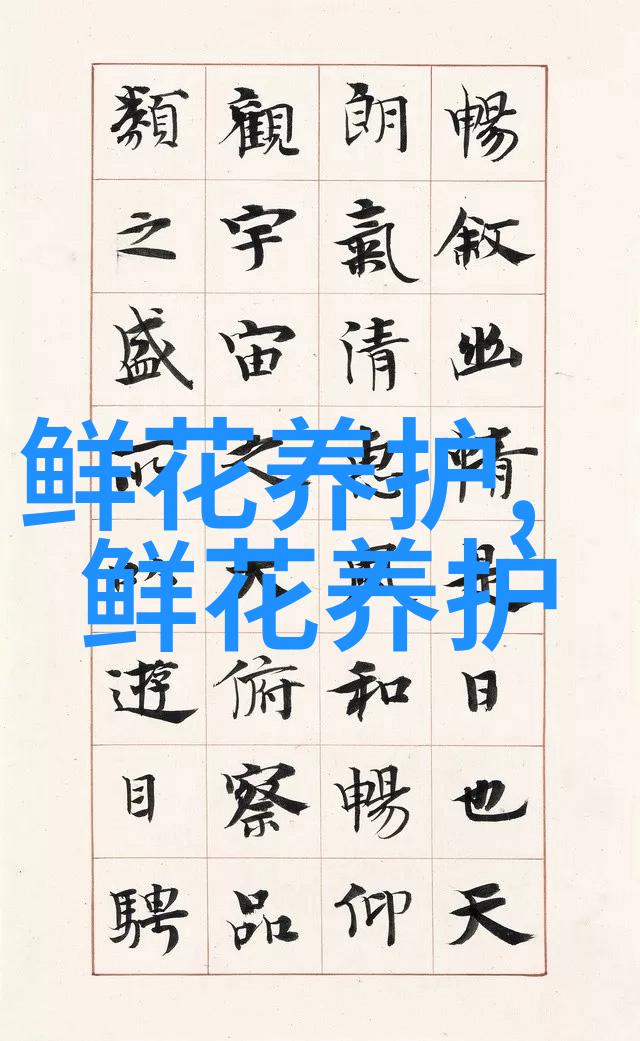 暢敘幽情是日也天
朗氣清惠風和暢仰
觀宇宙之大俯察品
類之盛所以遊目騁
鲜花养护，
鲜花养护